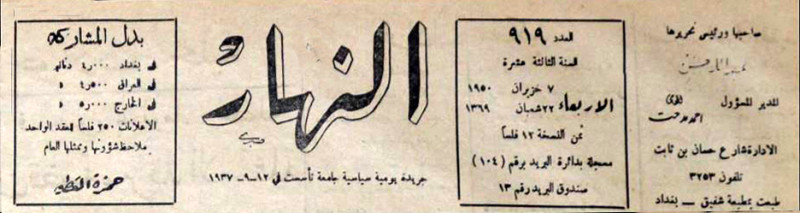 صاحبها ورئيس تحريرها
المدير المسؤول
الادارة شارع حسان بن ثابت
تلفون ٣٢٥٣
طبعت بمطبعة شفيق — بغداد
العدد ٩١٩
السنة الثالثة عشرة
الاربعاء
٧ حزيران ١٩٥٠
٢٢ شعبان ١٣٦٩
ثمن النسخة ١٢ فلساً
مسجلة بدائرة البريد برقم (١٠٤)
صندوق البريد رقم ١٣
النهار
جريدة يومية سياسية جامعة تأسست في ١٢-٩-١٩٣٧
بدل المشاركة
في بغداد ٤٫٠٠٠
في العراق ٤٫٥٠٠
في الخارج ٥٫٠٠٠
الاعلانات ٢٥٠ فلساً للعقد الواحد
ملاحظ شؤونها وممثلها العام
حمزة